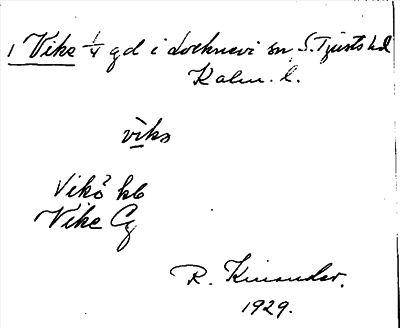 1 Viks 1/4 gd i Locknevi sn, S. Tjusts hd
Kalm. l.
viks
Vikö kb
Vike Cg
R. Kinander.
1929.